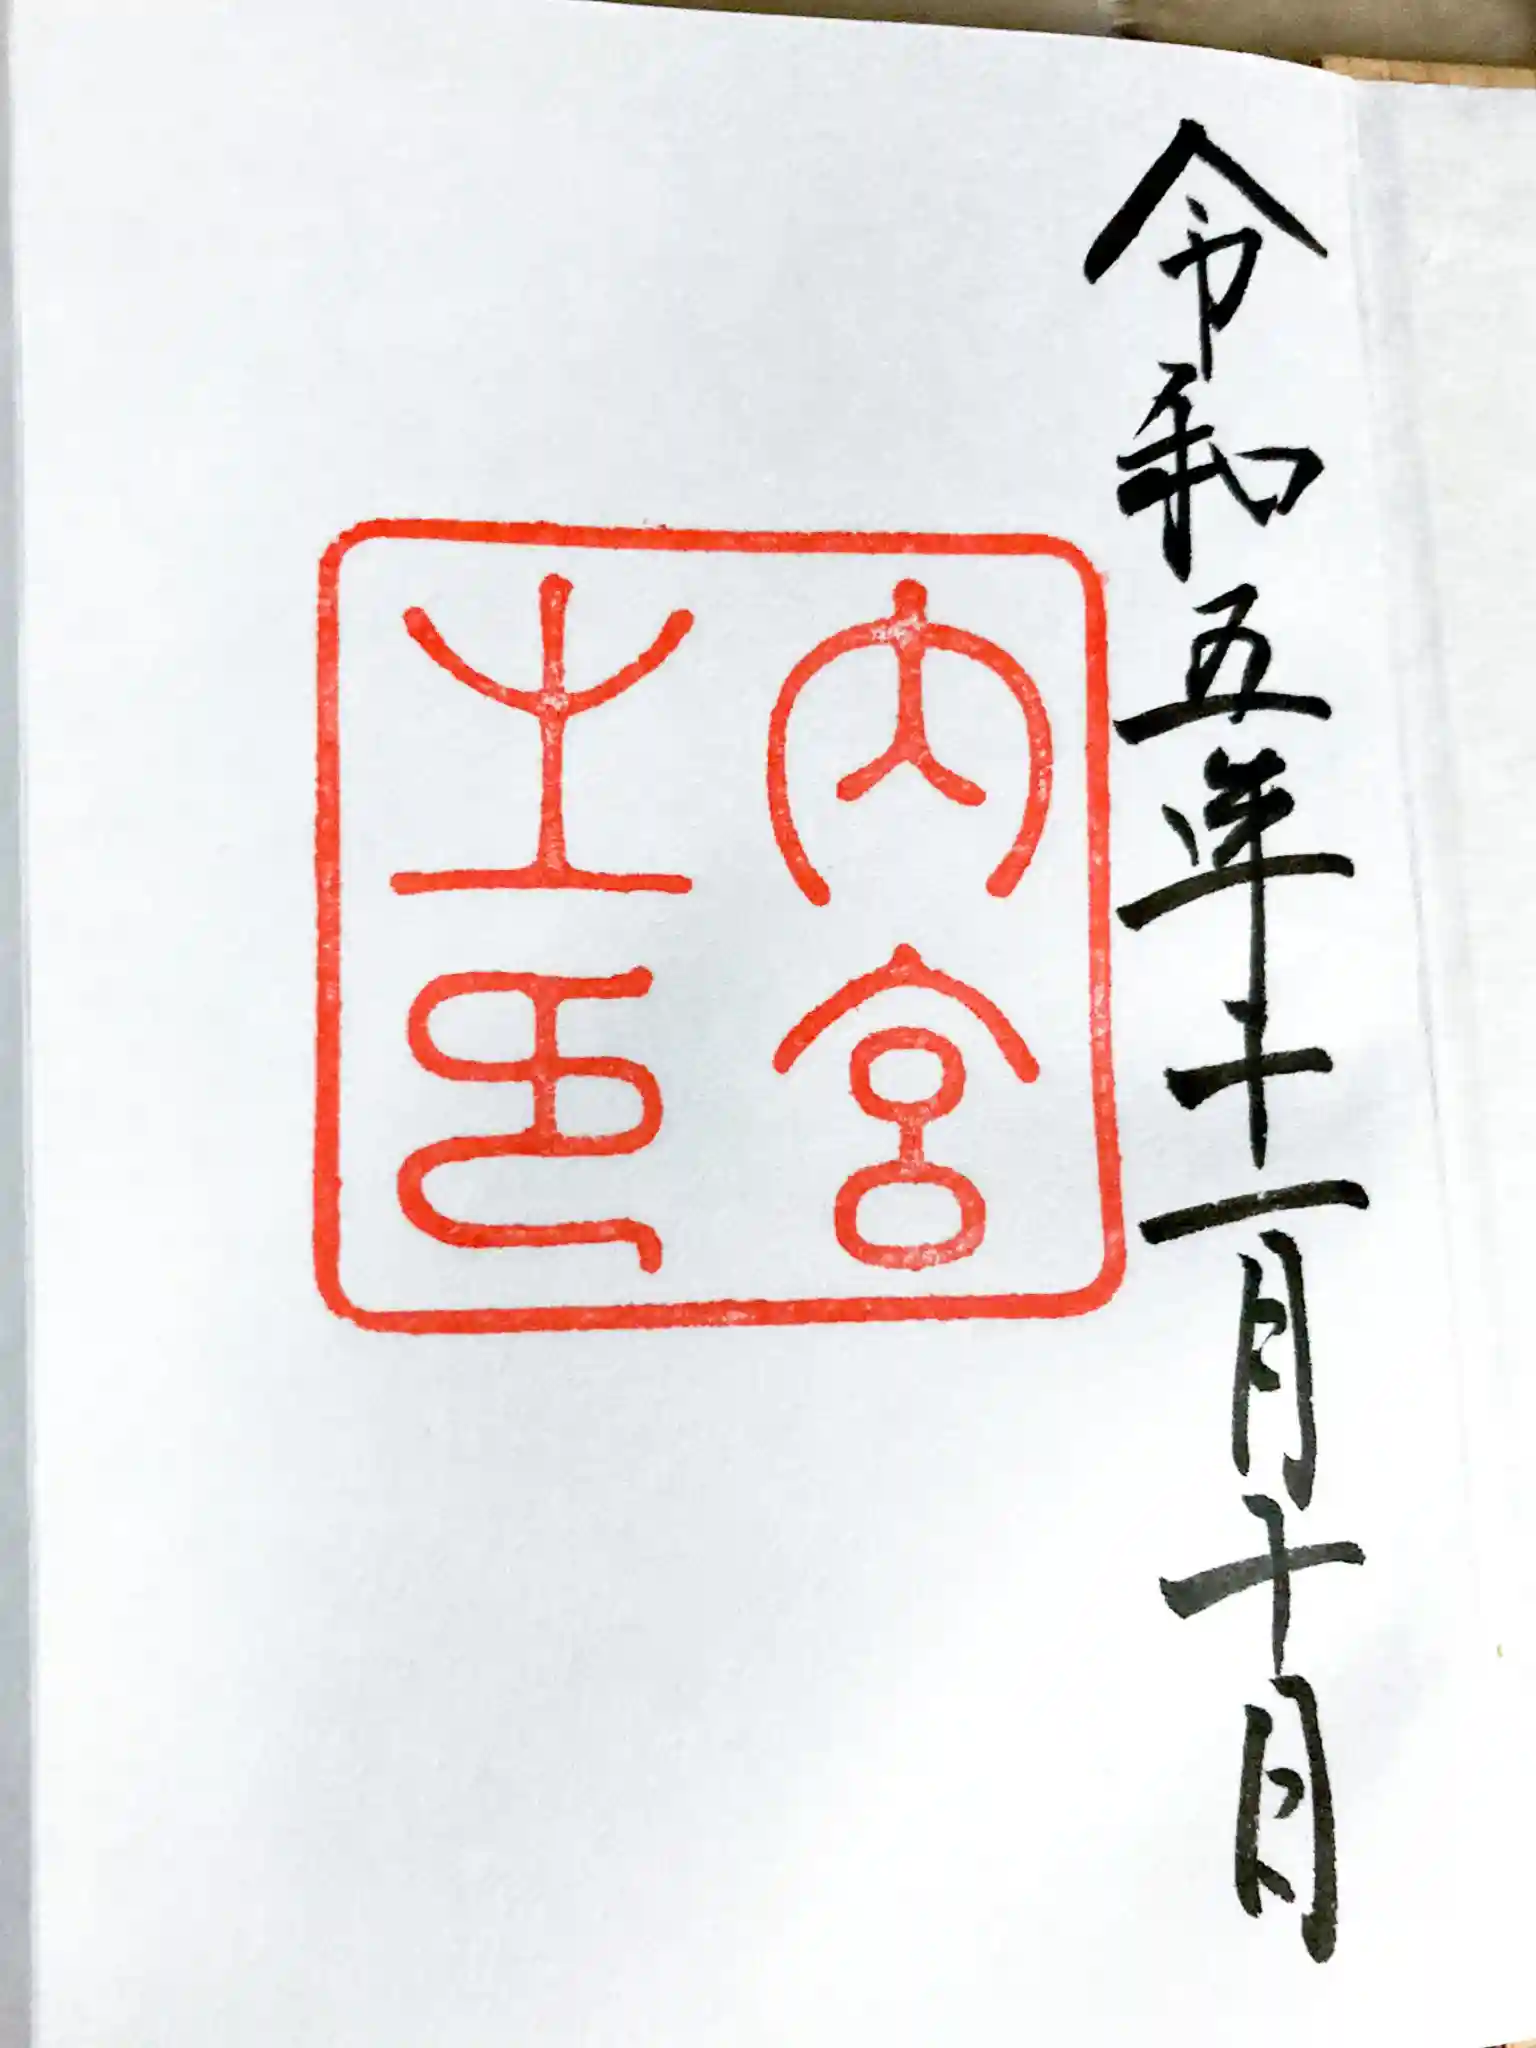 令和五年十一月十日
内宮
之印